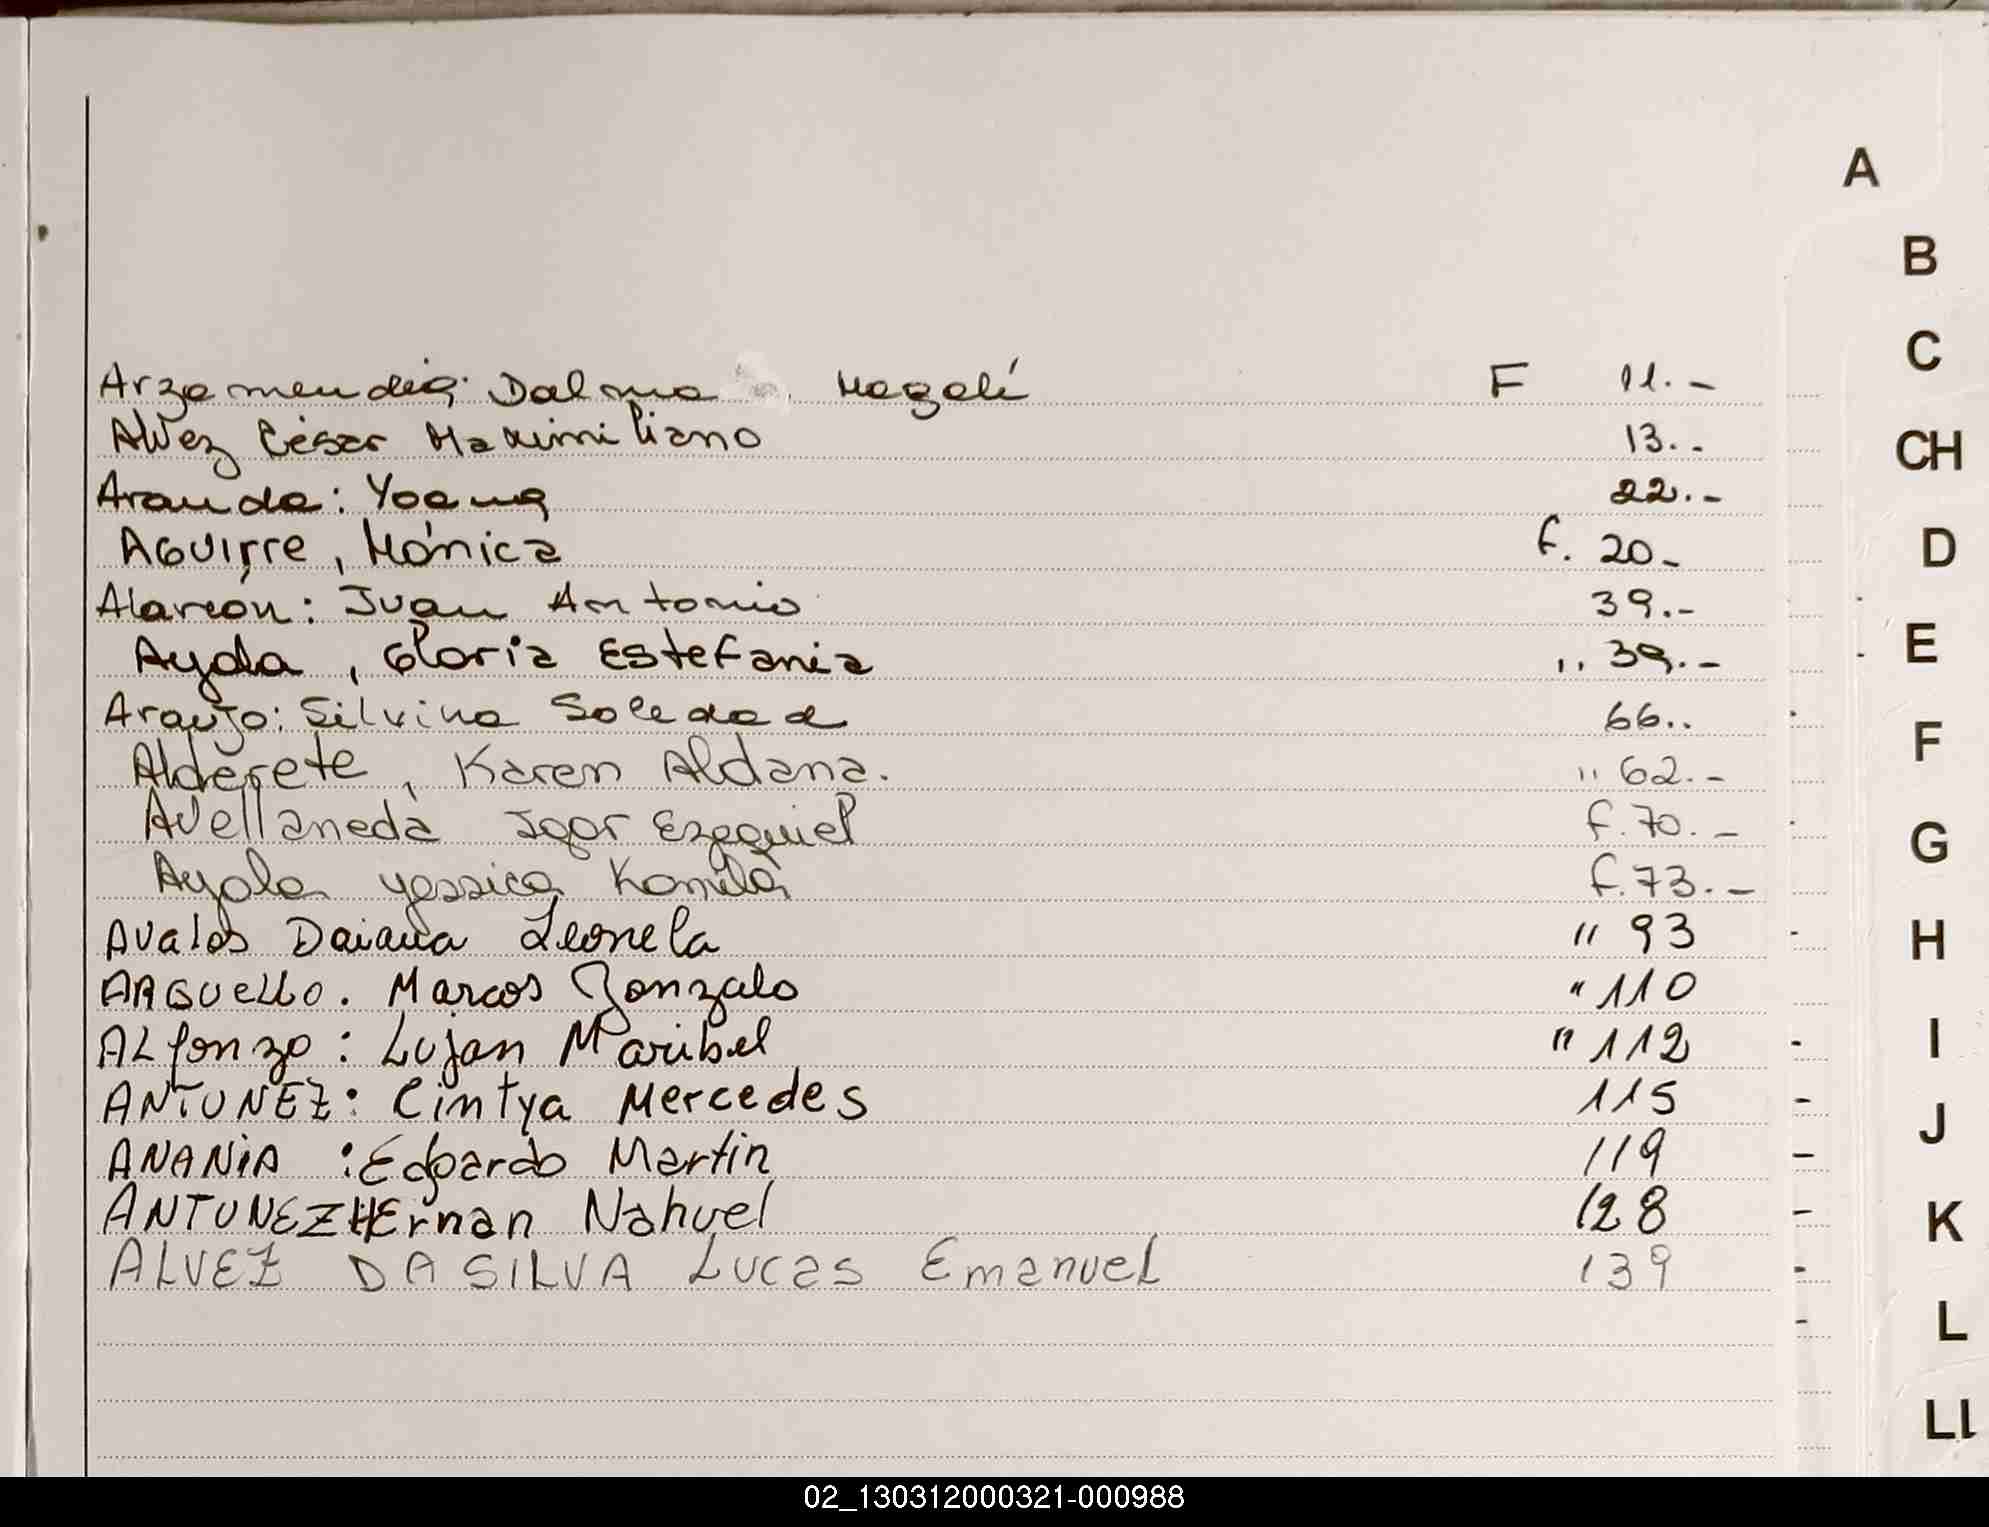 A
B
C
CH
D
E
F
G
H
I
J
K
L
Ll
Arzamendia: Dalma Magalí F 11.-
Alvez César Maximiliano 13..
Aranda: Yoana 22.-
AGUIrre, Mónica f. 20-
Alarcón: Juan Antonio 39.-
Ayala, Gloria Estefania ,, 39.-
Araujo: Silvina Soledad 66..
Alderete, Karen Aldana. ,, 62.-
Avellaneda Igor Ezequiel f. 70.-
Ayala Yessica Kamila f. 73.-
Avalos Daiana Leonela " 93
ARGuello. Marcos Gonzalo " 110
ALfonzo: Lujan Maribel " 112
ANTUNEZ: Cintya Mercedes 115
ANANiA: Edgardo Martin 119
ANTUNEZ HErnan Nahuel 128
ALVEZ DA SILVA Lucas EmanueL 139
02_130312000321-000988